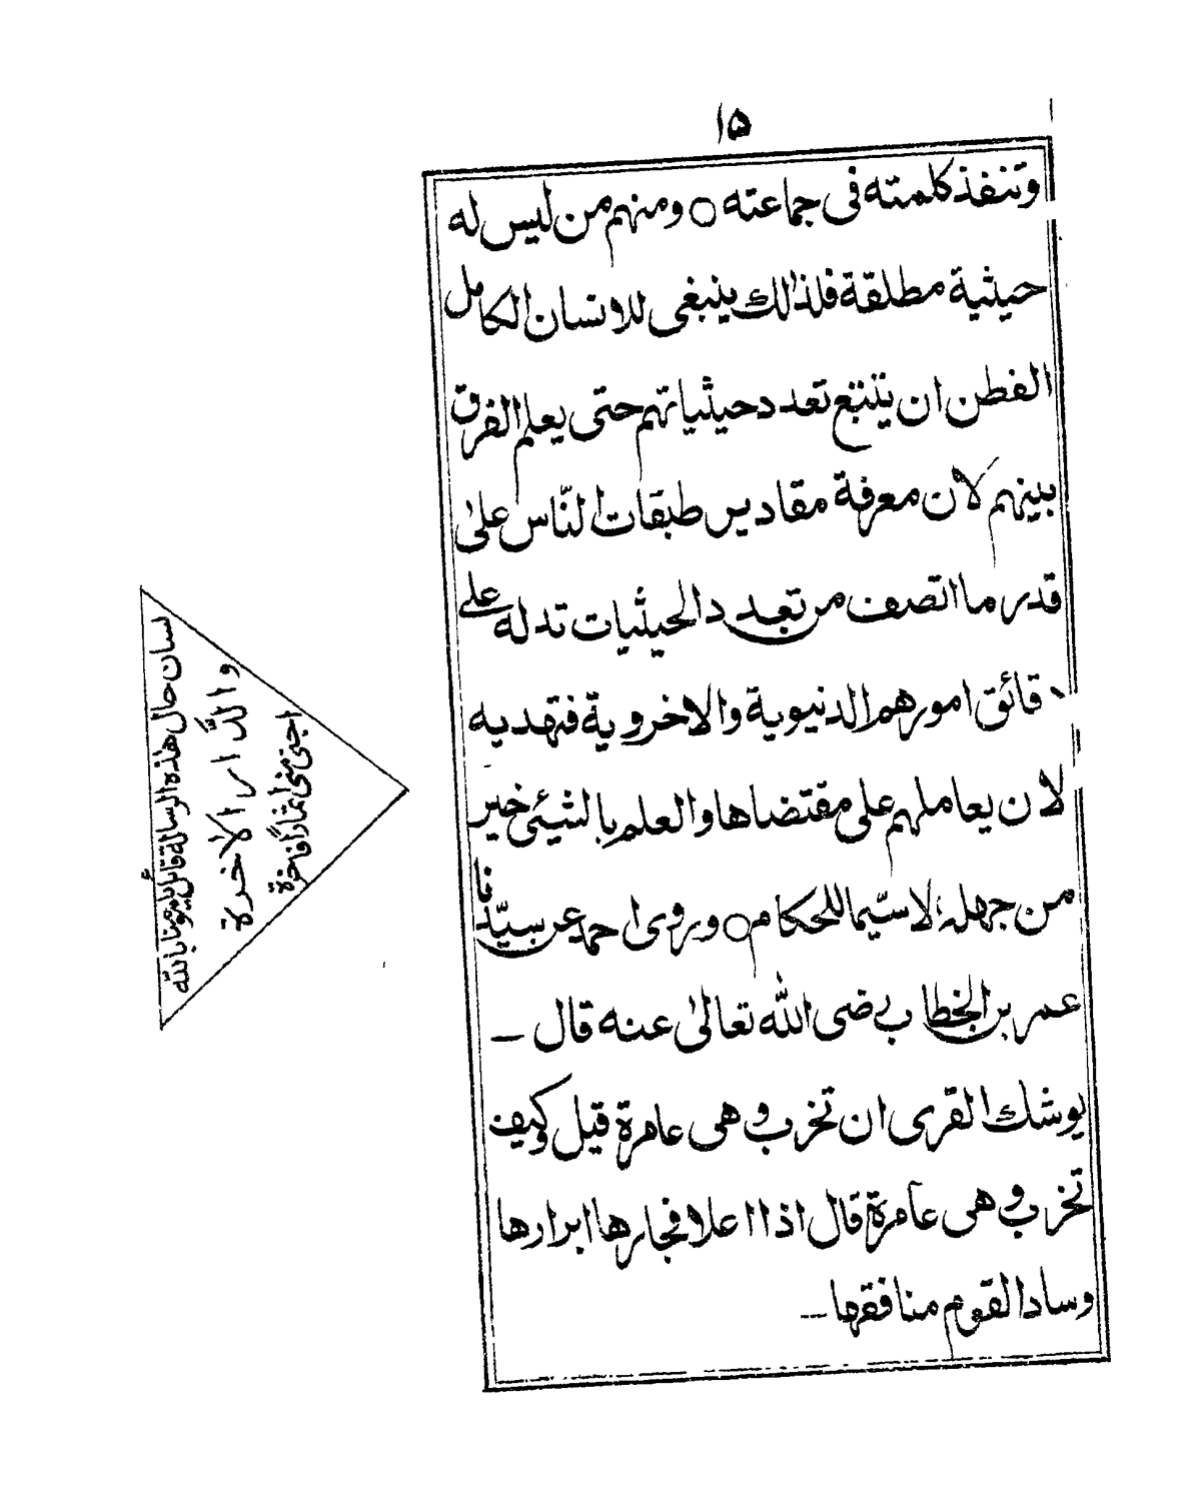 ۱۵
وتنفذ كلمته فى جماعته ○ ومنهم من ليس له
حيثية مطلقة فلذالك ينبغى للانسان الكامل
الفطن ان يتتبع تعدد حيثياتهم حتى يعلم الفرق
بينهم لان معرفة مقادير طبقات النّاس علىٰ
قدر ما اتصف من تعدد الحيثيات تدله علے
دقائق امورهم الدنيوية والاخروية فتهديه
لان يعاملهم على مقتضاها والعلم بالشيئ خير
من جهله لاسيّما للحكام ○ وروى احمد عن سيّدنا
عمر بن الخطاب رضى الله تعالىٰ عنه قال ـ
يوشك القرى ان تخرب وهى عامرة قيل وكيف
تخرب وهى عامرة قال اذا اعلا فجارها ابرارها
وساد القوم منافقها ـ
لسان حال هذه الرسالة قائل يا مؤمنا بالله
والدّار الاخرة
اجتنى منى ثمارًا فاخرة